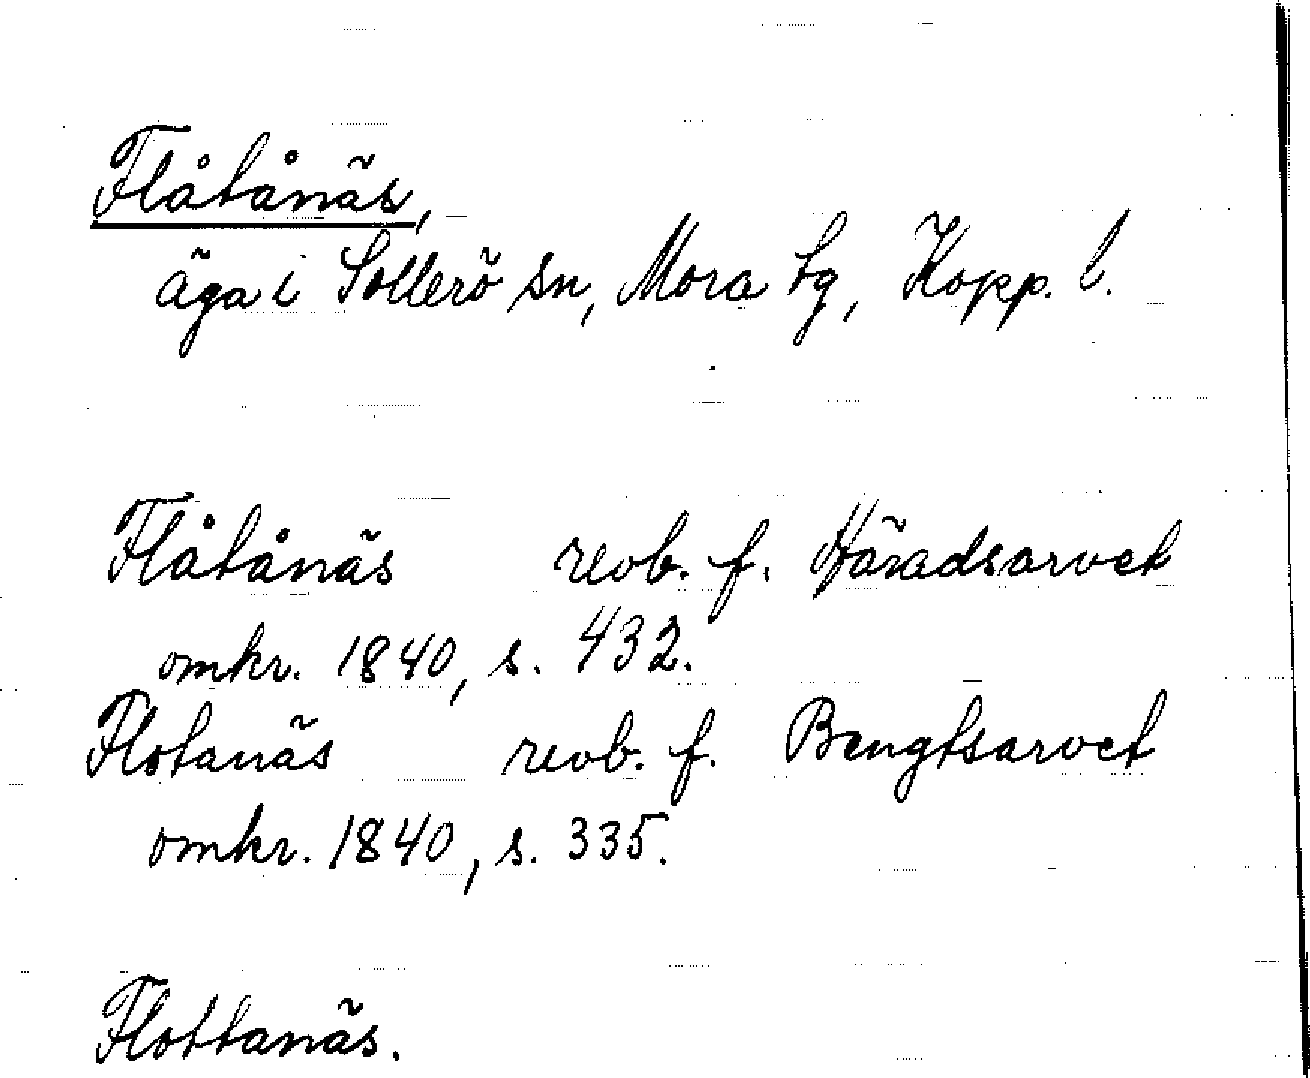 Flåtånäs,
äga i Sollerö sn, Mora tg, Kopp. l.
Flåtånäs revb. f. Häradsarvet
omkr. 1840, s. 432.
Flotanäs revb. f. Bengtsarvet
omkr. 1840, s. 335.
Flottanäs.